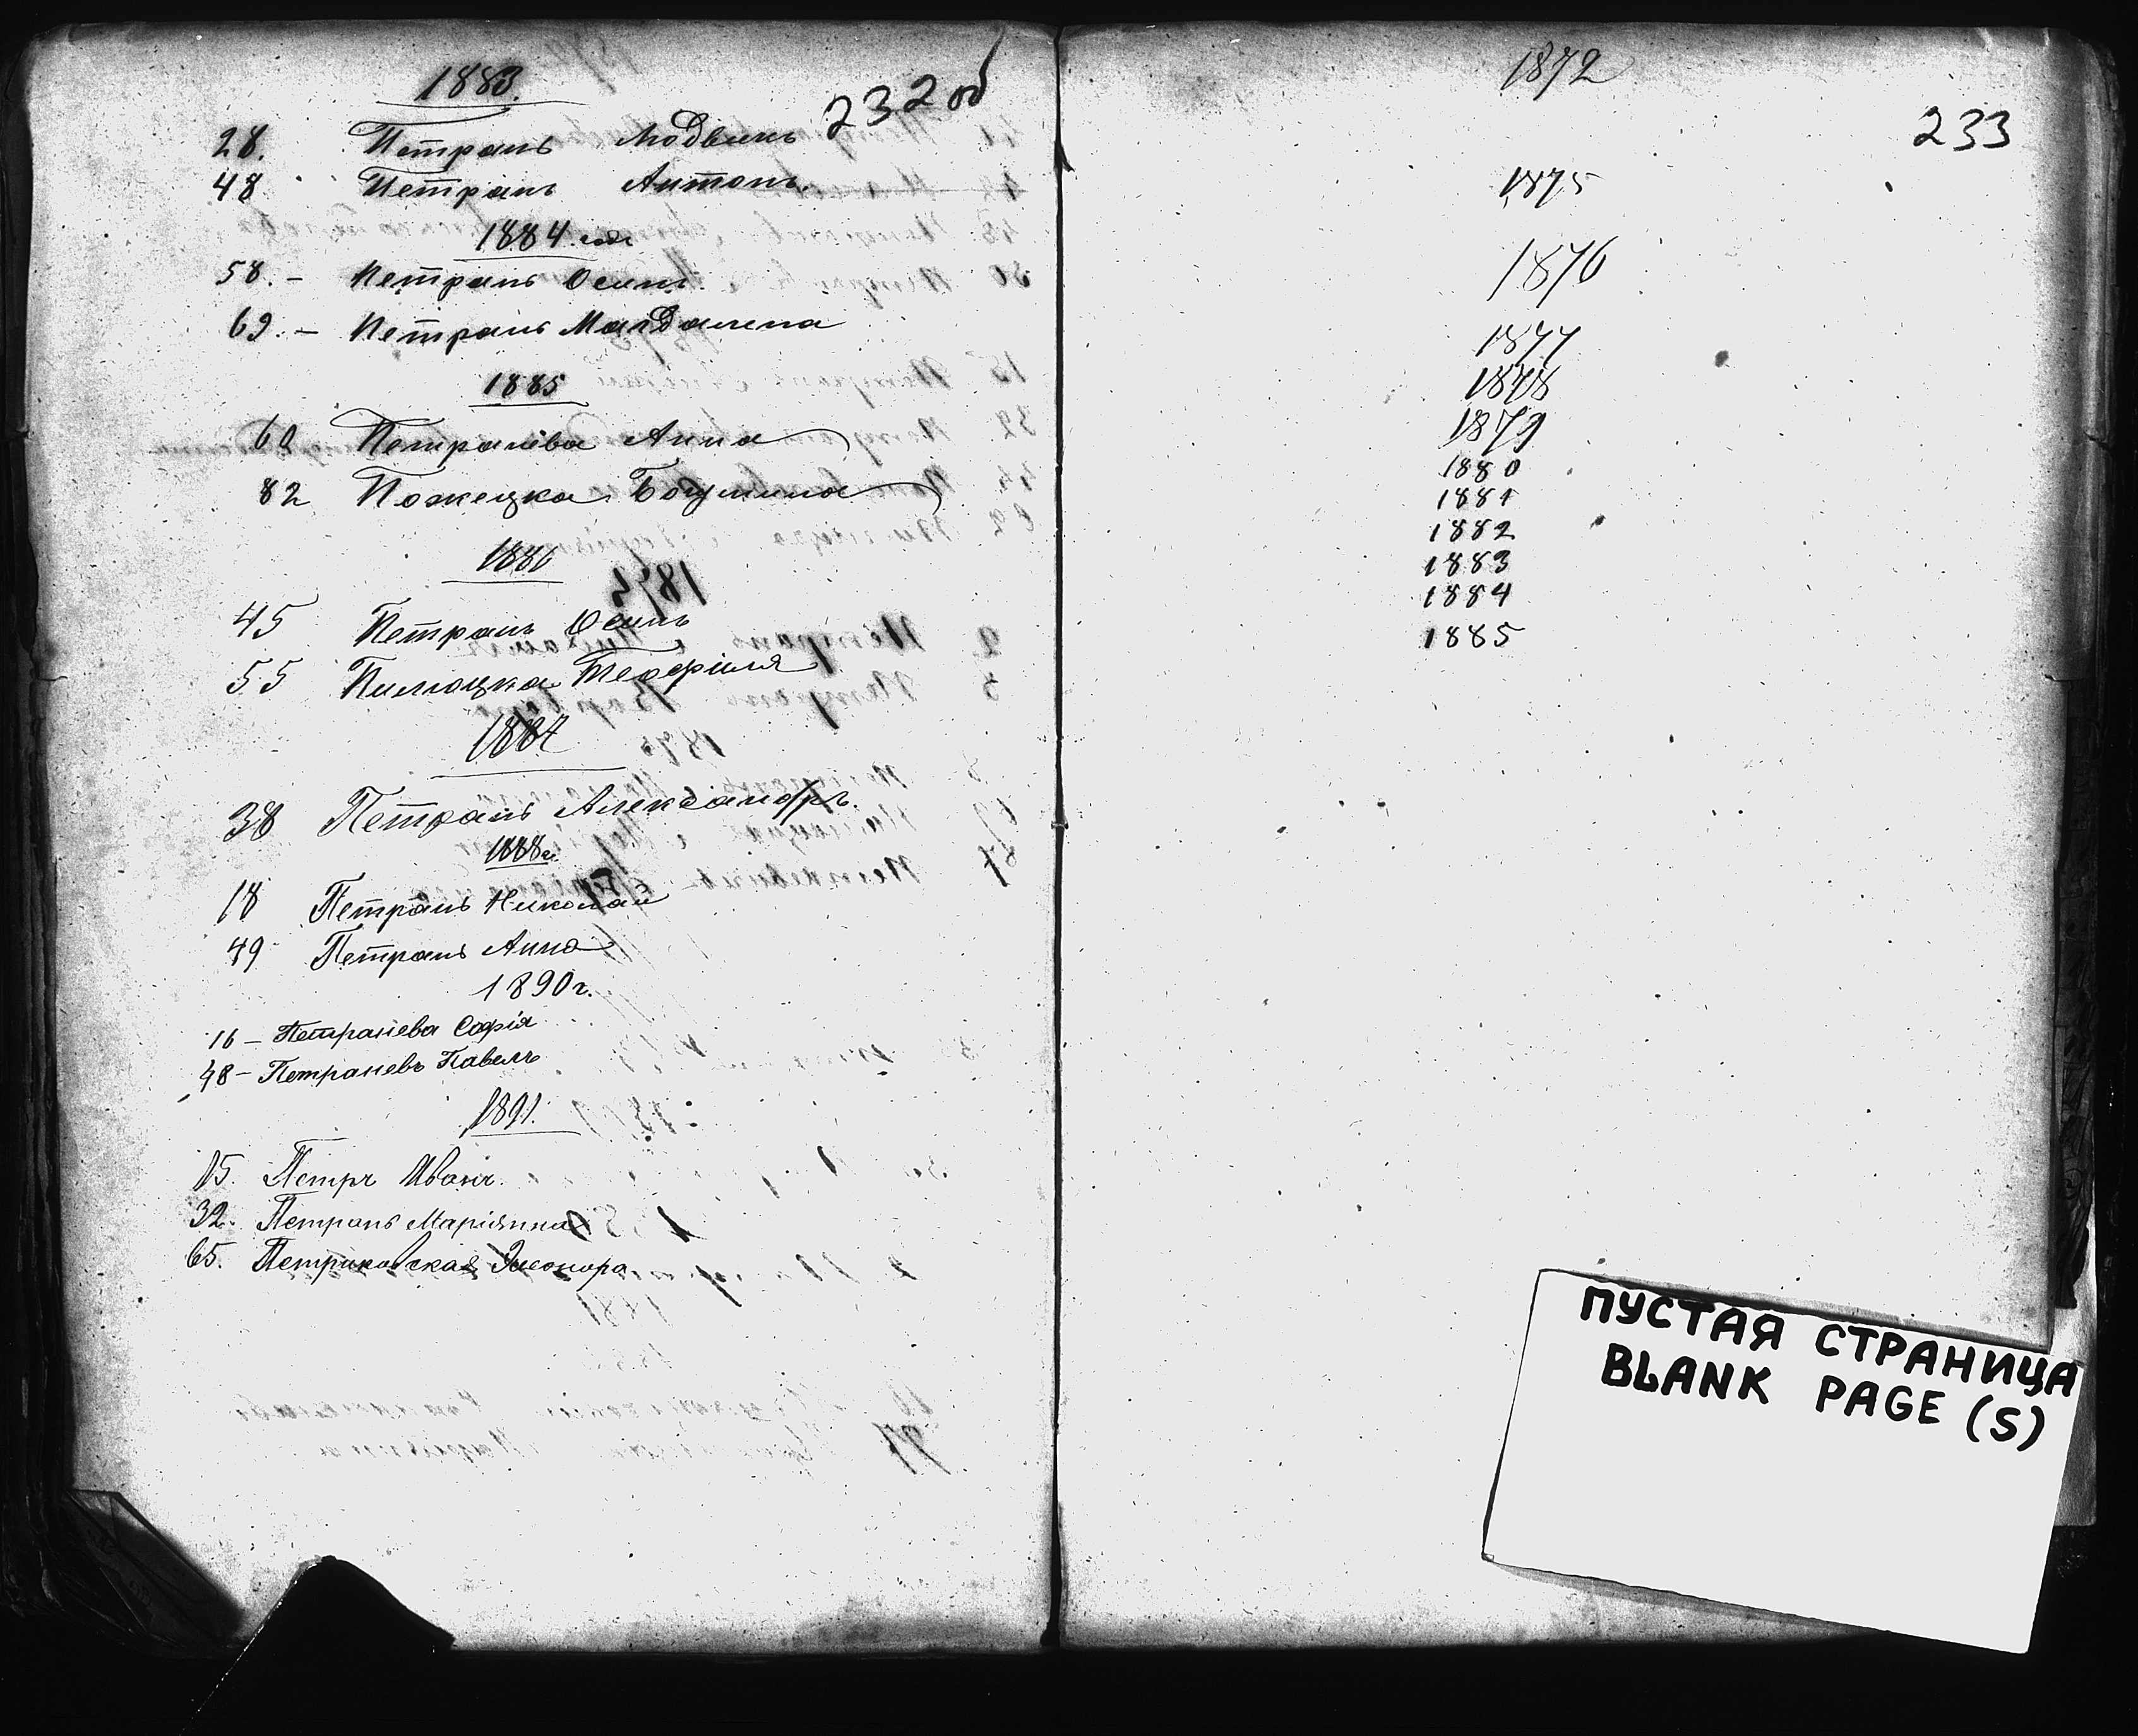 1883.
232 об
28. Петрань Людвикъ
48 Петрань Антонъ.
1884 года
58. – Петрань Осипъ.
69. – Петрань Магдалена
1885
69 Петранева Анна
82 Пожецка Богумила
1886
45 Петрань Осипъ
55 Пилюцка Теофиля
1887
38 Петрань Александръ.
1888 г.
18 Петрань Николай
49 Петрань Анна
1890 г.
16 – Петранева Софія
48 – Петраневъ Павелъ
1891.
15. Петръ Иванъ.
32. Петрань Маріянна
65. Петриковская Элеонора
1872
233
1875
1876
1877
1878
1879
1880
1881
1882
1883
1884
1885
ПУСТАЯ СТРАНИЦА
BLANK PAGE (S)